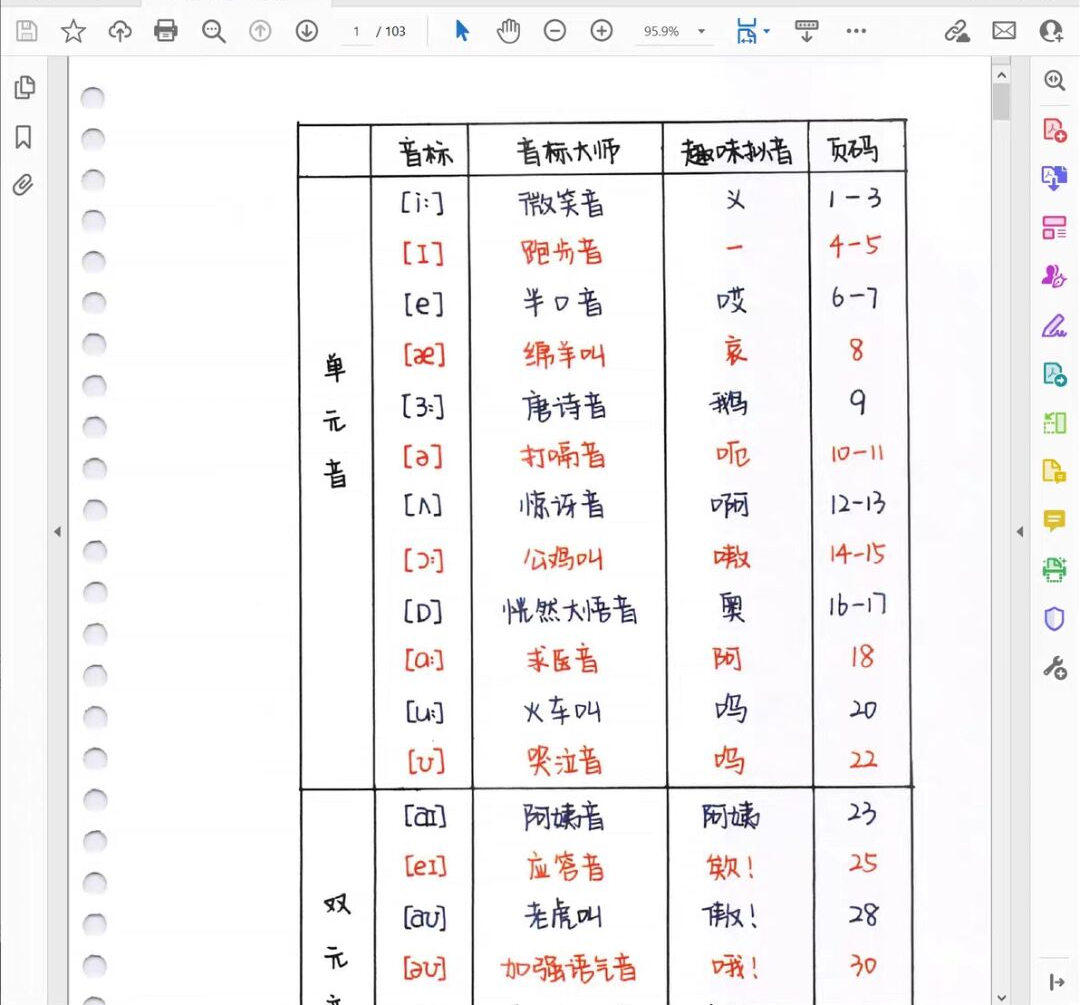 1 / 103 95.9%
音标 音标大师 趣味拟音 页码
单元音
[i:] 微笑音 义 1-3
[I] 跑步音 一 4-5
[e] 半口音 哎 6-7
[æ] 绵羊叫 哀 8
[3:] 唐诗音 鹅 9
[ə] 打嗝音 呃 10-11
[Λ] 惊讶音 啊 12-13
[ɔ:] 公鸡叫 嗷 14-15
[D] 恍然大悟音 奥 16-17
[a:] 求医音 阿 18
[u:] 火车叫 呜 20
[ʊ] 哭泣音 呜 22
双元
[aɪ] 阿姨音 阿姨 23
[eɪ] 应答音 欸! 25
[aʊ] 老虎叫 傲! 28
[əʊ] 加强语气音 哦! 30